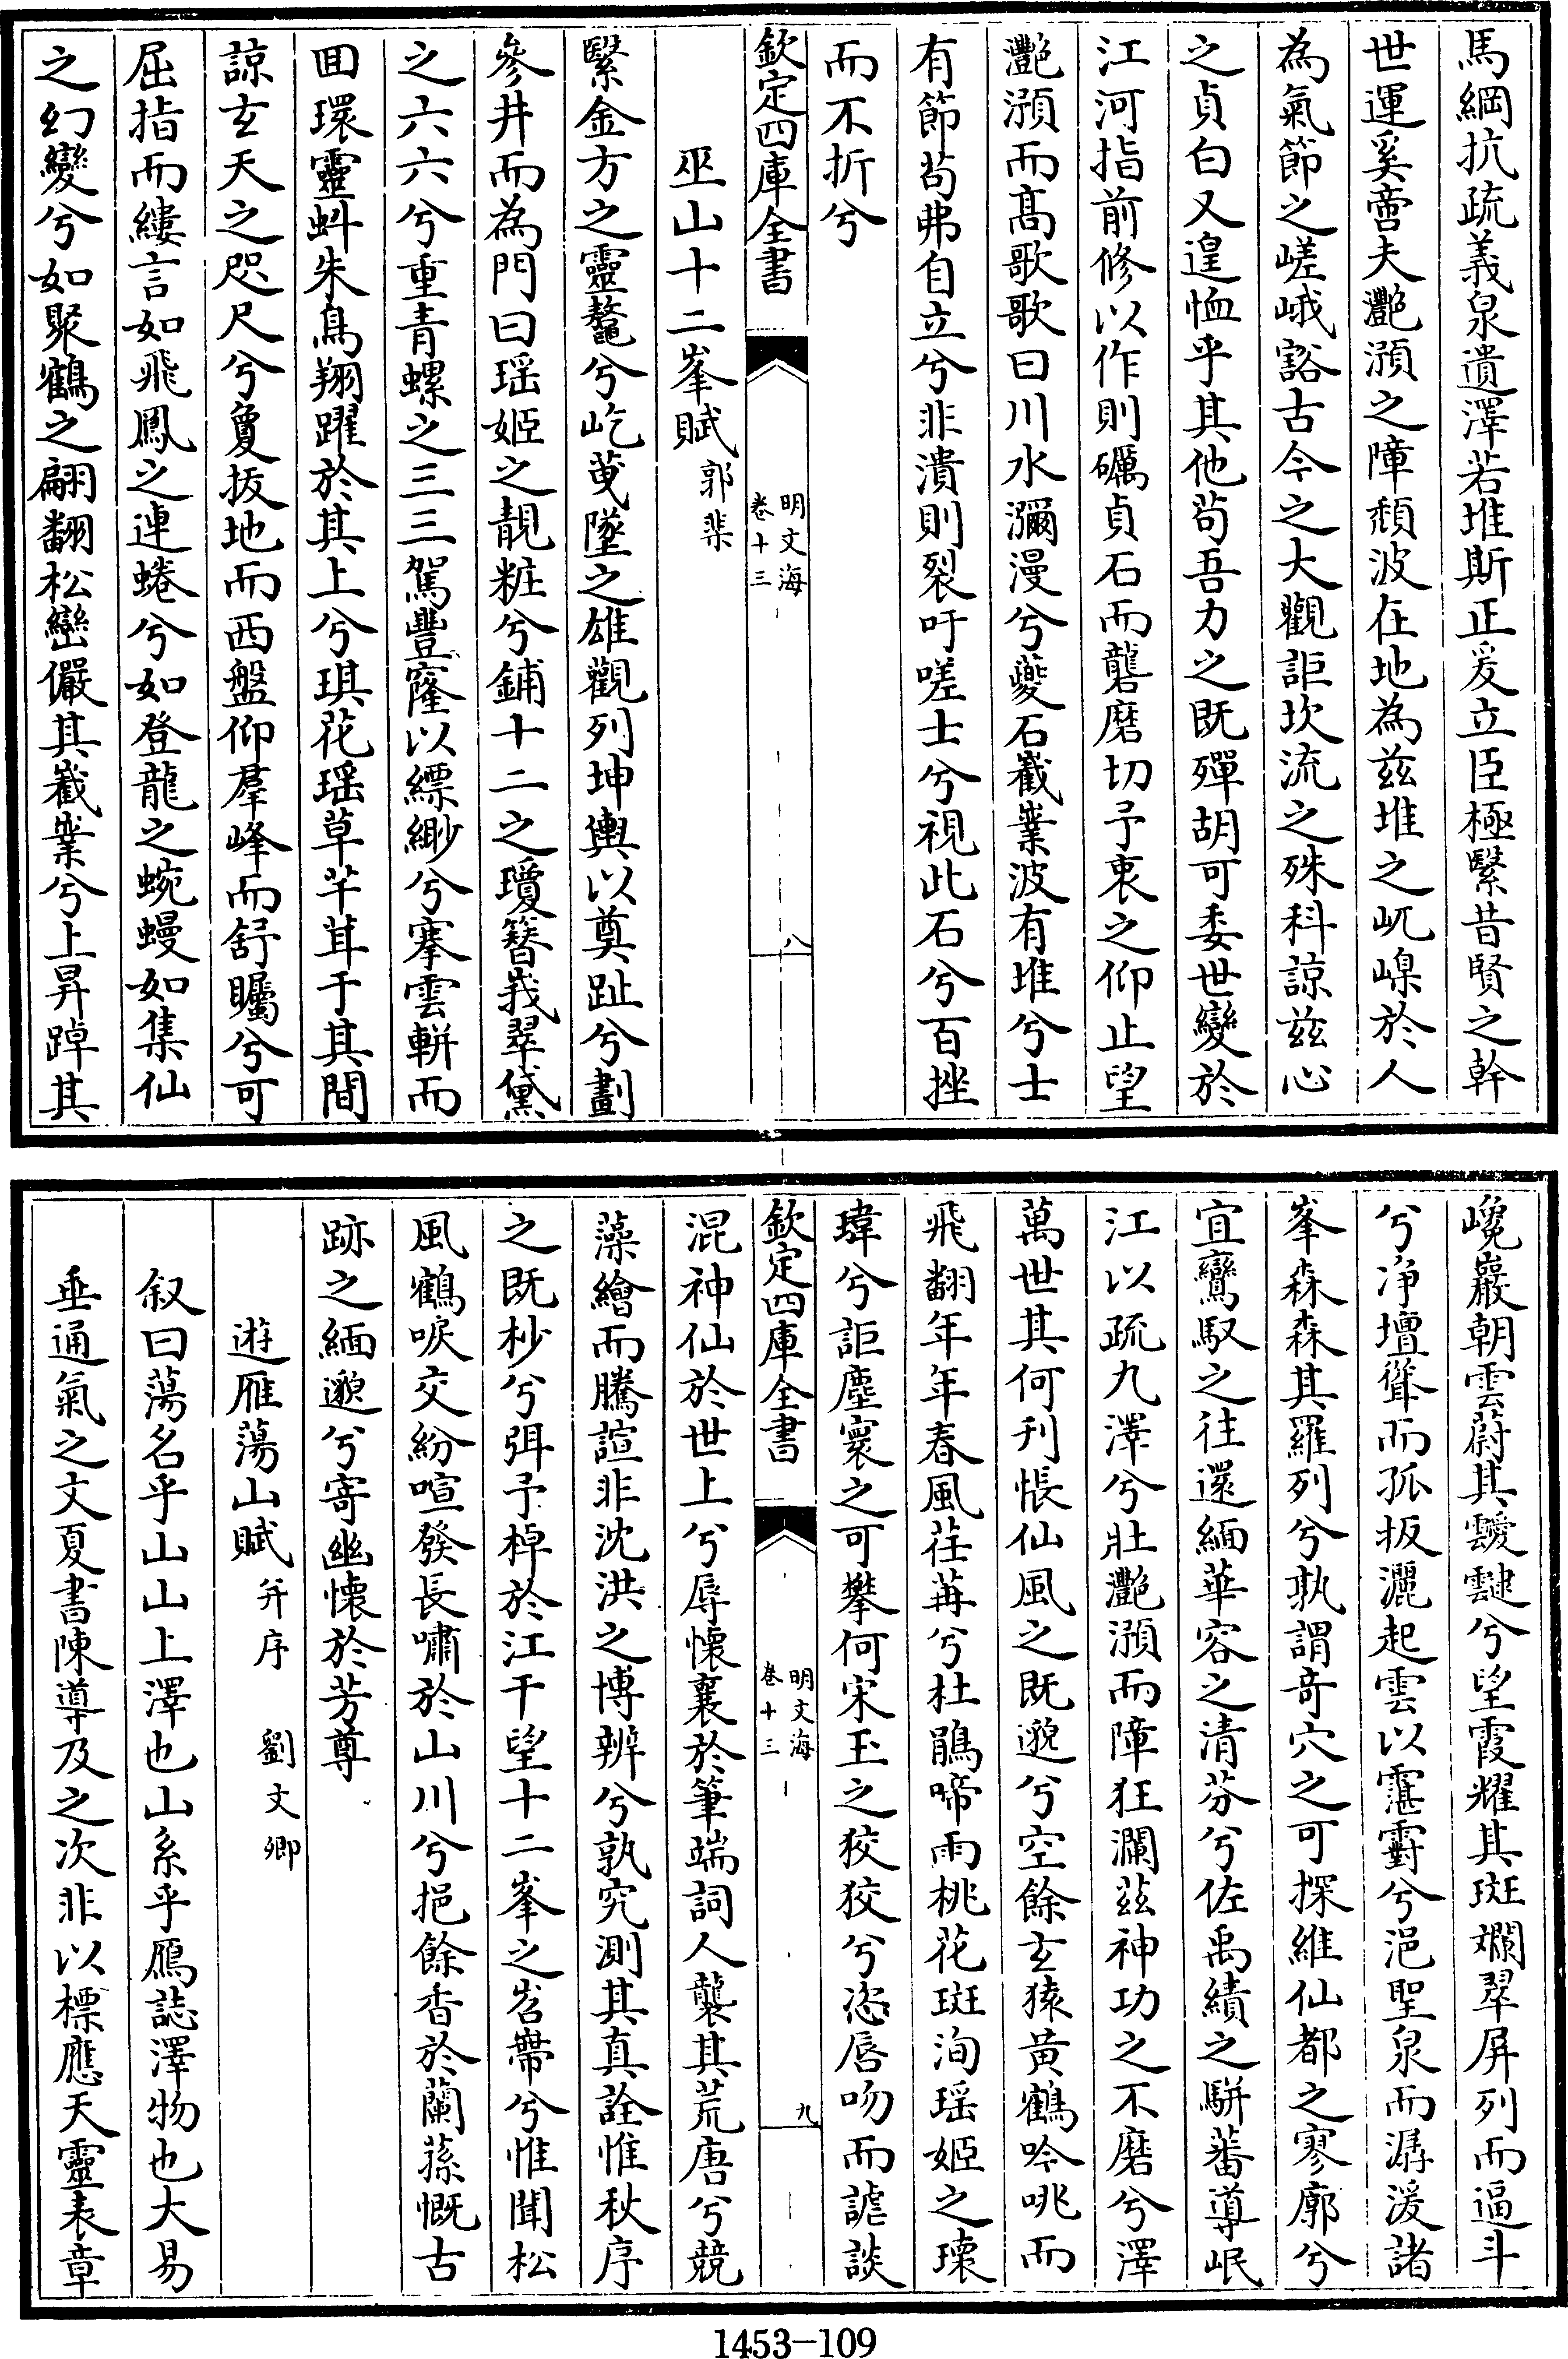 馬綱抗疏義泉遺澤若堆斯正爰立臣極繄昔賢之幹
世運奚啻夫灔澦之障頽波在地為兹堆之屼嵲於人
為氣節之嵯峨豁古今之大觀詎坎流之殊科諒兹心
之貞白又遑恤乎其他苟吾力之既殫胡可委世變於
江河指前修以作則礪貞石而礱磨切予衷之仰止望
灔澦而髙歌歌曰川水瀰漫兮夔石巀嶪波有堆兮士
有節苟弗自立兮非潰則裂吁嗟士兮視此石兮百挫
而不折兮
欽定四庫全書
明文海
卷十三
八
巫山十二峯賦 郭棐
繄金方之靈鼇兮屹䕫墜之雄觀列坤輿以奠趾兮劃
參井而為門曰瑶姬之靚粧兮鋪十二之瓊簪峩翠黛
之六六兮重青螺之三三駕豐窿以縹緲兮搴雲軿而
囬環靈蚪朱鳥翔躍於其上兮琪花瑶草芊茸于其間
諒玄天之咫尺兮夐拔地而西盤仰羣峰而舒矚兮可
屈指而縷言如飛鳳之連蜷兮如登龍之蜿蟃如集仙
之幻變兮如聚鶴之翩翻松巒儼其巀嶪兮上昇踔其
巉巖朝雲蔚其靉靆兮望霞耀其斑斕翠屏列而逼斗
兮净壇聳而孤扳灑起雲以霮䨴兮浥聖泉而潺湲諸
峯森森其羅列兮孰謂奇穴之可探維仙都之寥廓兮
宜鸞馭之往還緬華容之清芬兮佐禹績之駢蕃導岷
江以疏九澤兮壯灔澦而障狂瀾兹神功之不磨兮澤
萬世其何刋悵仙風之既邈兮空餘玄猿黄鶴吟咷而
飛翻年年春風荏苒兮杜鵑啼雨桃花斑洵瑶姬之瓌
瑋兮詎塵寰之可攀何宋玉之狡狡兮恣唇吻而謔談
欽定四庫全書
明文海
卷十三
九
混神仙於世上兮辱懷襄於筆端詞人襲其荒唐兮競
藻繪而騰諠非沈洪之博辨兮孰究測其真詮惟秋序
之既杪兮弭予棹於江干望十二峯之岧帶兮惟聞松
風鶴唳交紛喧發長嘯於山川兮挹餘香於蘭蓀慨古
跡之緬邈兮寄幽懷於芳尊
遊雁蕩山賦 并序 劉文卿
叙曰蕩名乎山山上澤也山系乎鴈誌澤物也大易
垂通氣之文夏書陳導及之次非以標應天靈表章
1453-109